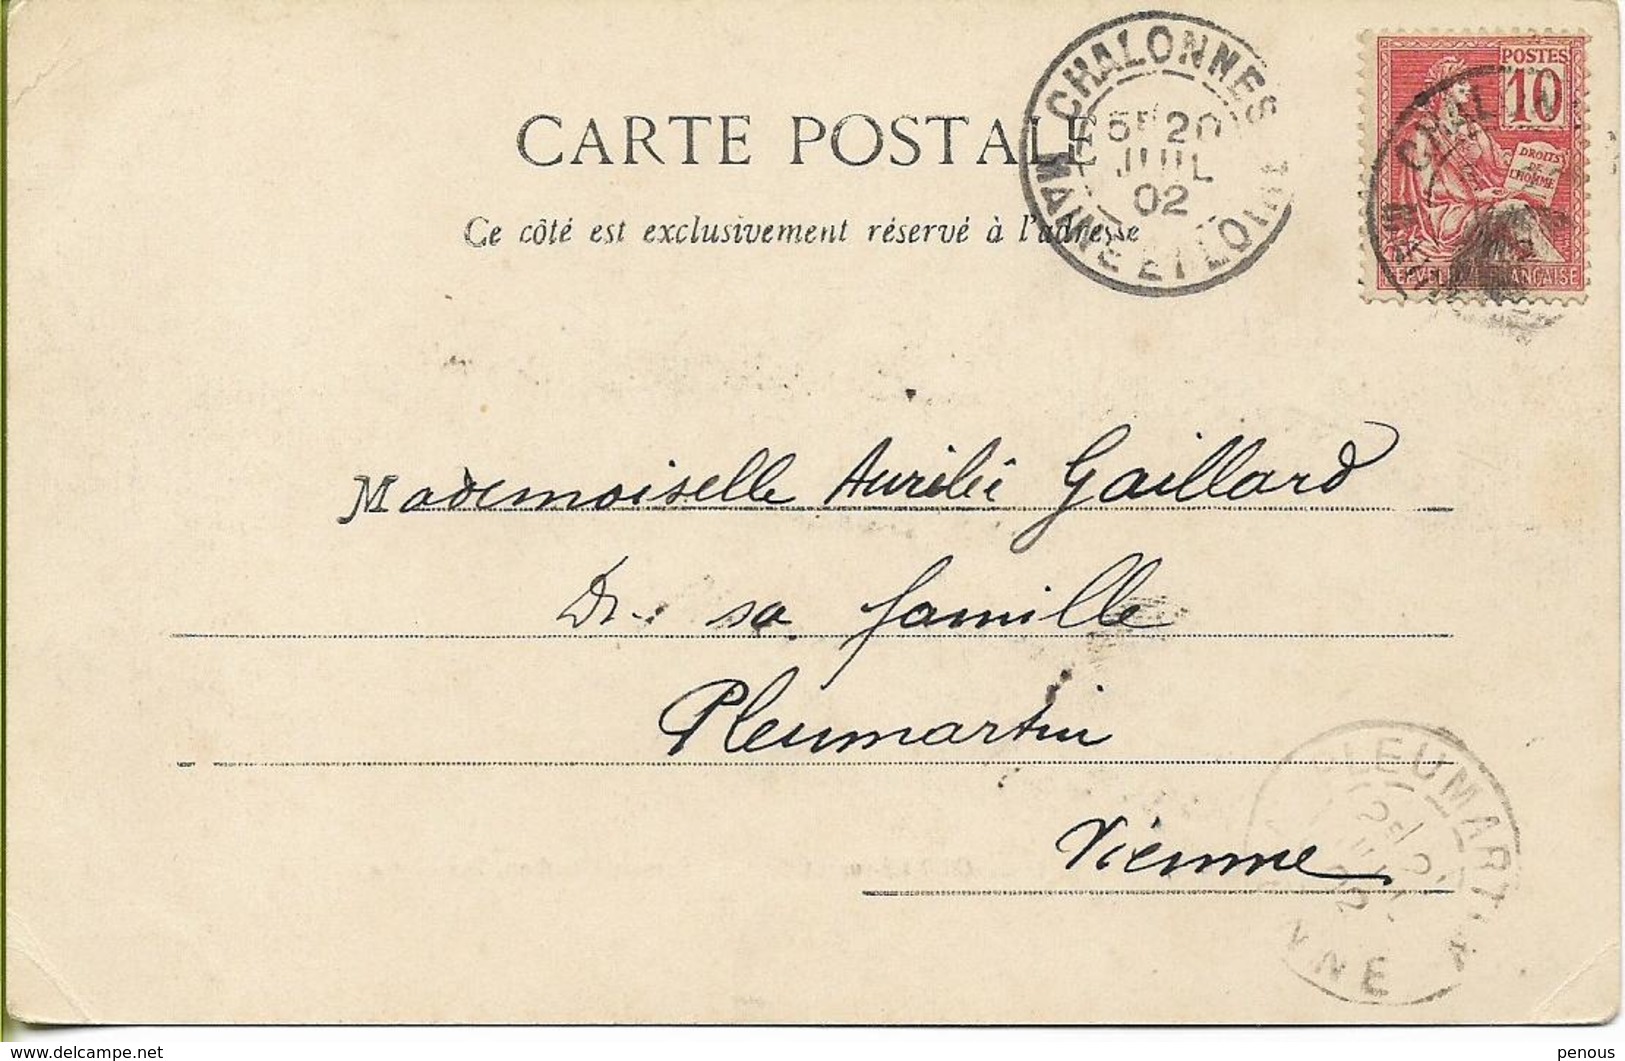 CHALONNES
MAINE ET LOIRE
5E 20
JUIL
02
POSTES
10
DROITS
DE
L'HOMME
CARTE POSTALE
Ce côté est exclusivement réservé à l'adresse
Mademoiselle Aurélie Gaillard
Dr. sa famille
Pleumartin
Vienne
PLEUMARTIN
02
penous